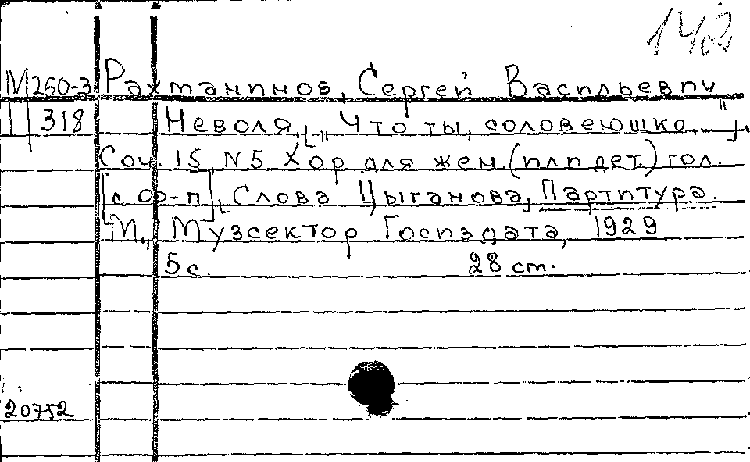 142
М260-3 Рахманинов, Сергей Васильевич
П 318 Неволя, [„Что ты, соловеюшко"]
Соч. 15 N5 Хор для жен. (или дет.) гол.
[с ф-п], Слова Цыганова, Партитура.
М., Музсектор Госиздата, 1929
5 с. 28 cm.
20752